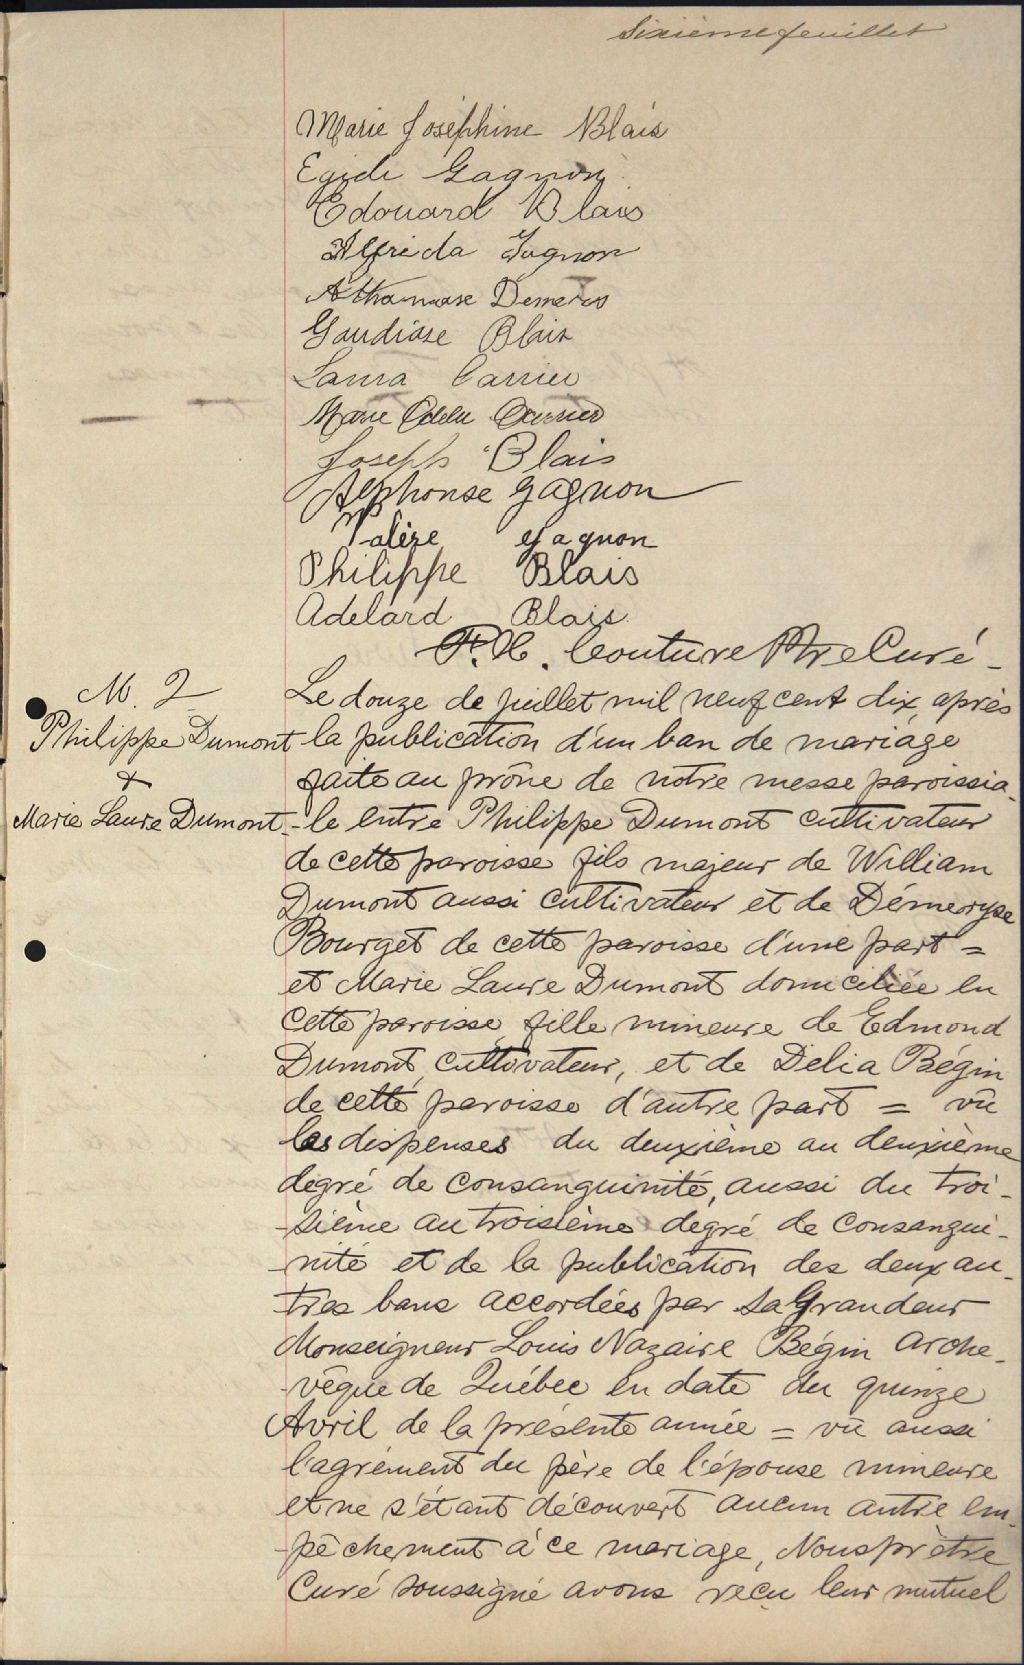 Sixième feuillet
Marie Joséphine Blais
Egide Gagnon
Edouard Blais
Alfrida Gagnon
Athanase Demers
Gaudiose Blais
Laura Carrier
Marie Odelie Carrier
Joseph Blais
Alphonse Gagnon
Valère Gagnon
Philippe Blais
Adelard Blais
F. X. Couture Ptre Curé
M. 2
Philippe Dumont
&
Marie Laure Dumont
Le douze de juillet mil neuf cent dix, après
la publication d'un ban de mariage
faite au prône de notre messe paroissia-
-le entre Philippe Dumont cultivateur
de cette paroisse fils majeur de William
Dumont aussi cultivateur et de Démeryse
Bourget de cette paroisse d'une part =
et Marie Laure Dumont domiciliée en
cette paroisse, fille mineure de Edmond
Dumont, cultivateur, et de Delia Bégin
de cette paroisse d'autre part = vû
les dispenses du deuxième au deuxième
dégré de consanguinité, aussi du troi-
-sième au troisième dégré de consangui-
-nité et de la publication des deux au-
-tres bans accordées par Sa Grandeur
Monseigneur Louis Nazaire Bégin Arche-
-vêque de Québec en date du quinze
Avril de la présente année = vû aussi
l'agrément du père de l'épouse mineure
et ne s'étant découvert aucun autre em-
-pêchement à ce mariage, Nous prêtre
Curé soussigné avons reçu leur mutuel